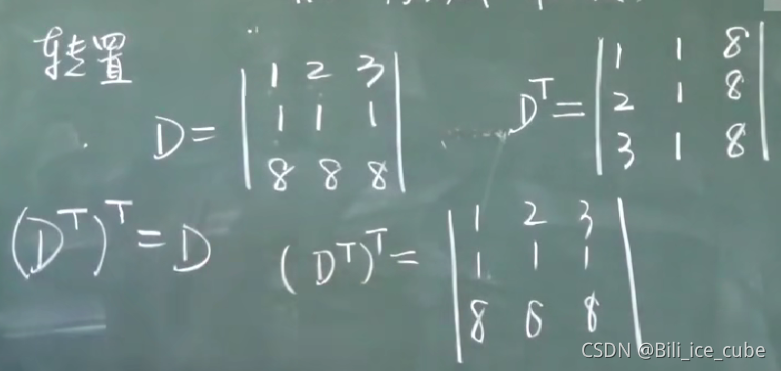 转置
D = | 1 2 3 |
| 1 1 1 |
| 8 8 8 |
D^T = | 1 1 8 |
| 2 1 8 |
| 3 1 8 |
(D^T)^T = D
(D^T)^T = | 1 2 3 |
| 1 1 1 |
| 8 8 8 |
CSDN @Bili_ice_cube